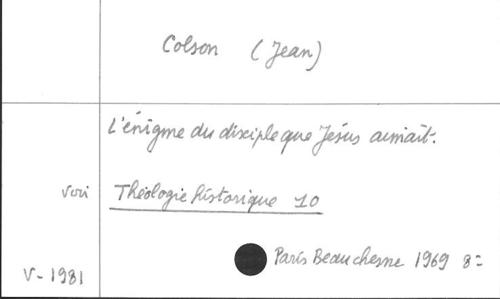 Colson (Jean)
L'énigme du disciple que Jésus aimait.
voir Théologie historique 10
Paris Beauchesne 1969 8=
V-1981